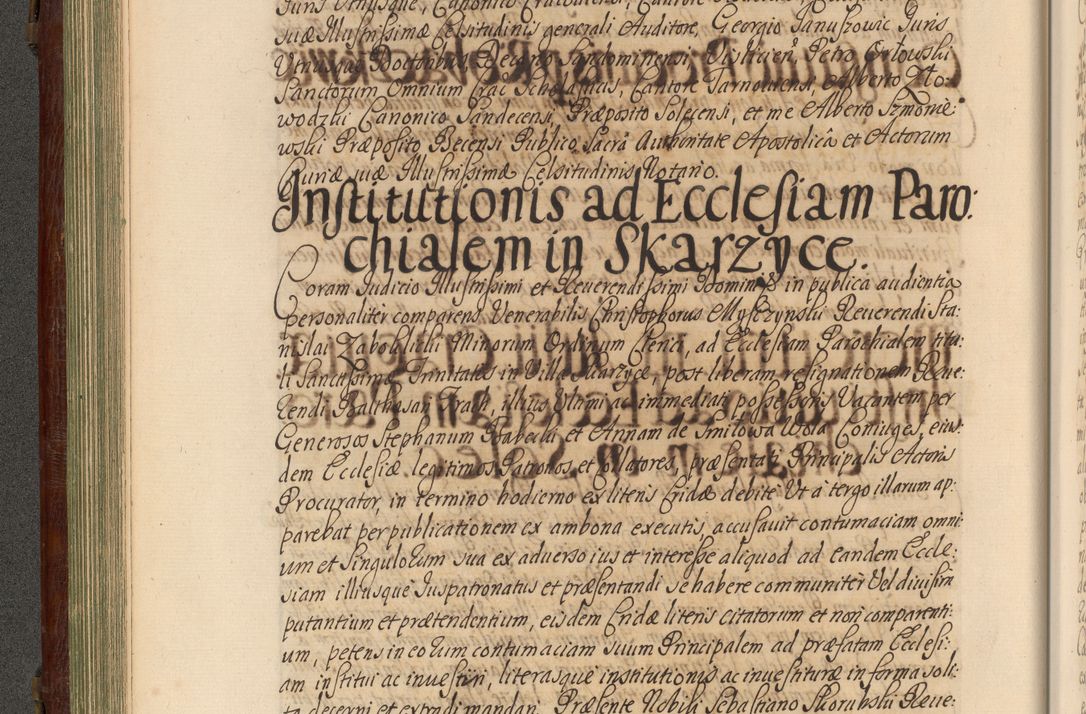 Juris Utriusque, Canonico Cracoviensi, Cantore
suæ Illustrissimæ Celsitudinis generali Auditore, Georgio Januszowic Juris
Utriusque Doctoribus Decano Sandomiriensi, Vislicien: Petro Orłowski
Sanctorum Omnium Crac: Scholasticus, Cantore Tarnoviensi, Alberto Zło-
wodzki Canonico Sandecensi, Præposito Solecensi, et me Alberto Szmonie:
wski Præposito Becensi Publico Sacra Authoritate Apostolicâ et Actorum
Curiæ suæ Illustrissimæ Celsitudinis Notario.
Institutionis ad Ecclesiam Paro:
chialem in Skarzyce.
Coram Judicio Illustrissimi et Reverendissimi Domini in publica audientia
personaliter comparens Venerabilis Christophorus Myszczynski Reverendi Sta:
nislai Zabokliki Minorum Ordinum Clerici, ad Ecclesiam Parochialem titu:
li Sanctissimæ Trinitatis in Villa Skarzyce, post liberam resignationem Reve:
rendi Balthasari Frach, illius Ultimi ac immediati possessoris Vacantem per
Generosos Stephanum Babecki et Annam de Smiłowa Wola Coniuges, eius
dem Ecclesiæ legitimos Patronos et Collatores, præsentati Principalis Actoris
Procurator, in termino hodierno ex literis Cridæ debite Ut a tergo illarum ap:
parebat per publicationem ex ambona executis, accusavit contumaciam omni
um et singulorum sua ex adverso ius et interesse aliquod ad eandem Eccle:
siam illiusque Juspatronatus et præsentandi se habere communiter Vel divisim
putantium et prætendentium, eisdem Cridæ literis citatorum et non comparenti:
um, petens in eorum contumaciam suum Principalem ad præfatam Ecclesi:
am institui ac investiri, literasque institutionis ac investituræ in forma soli:
ta decerni et extradi mandari. Præsente Nobili Sebastiano Skorubski Reve: